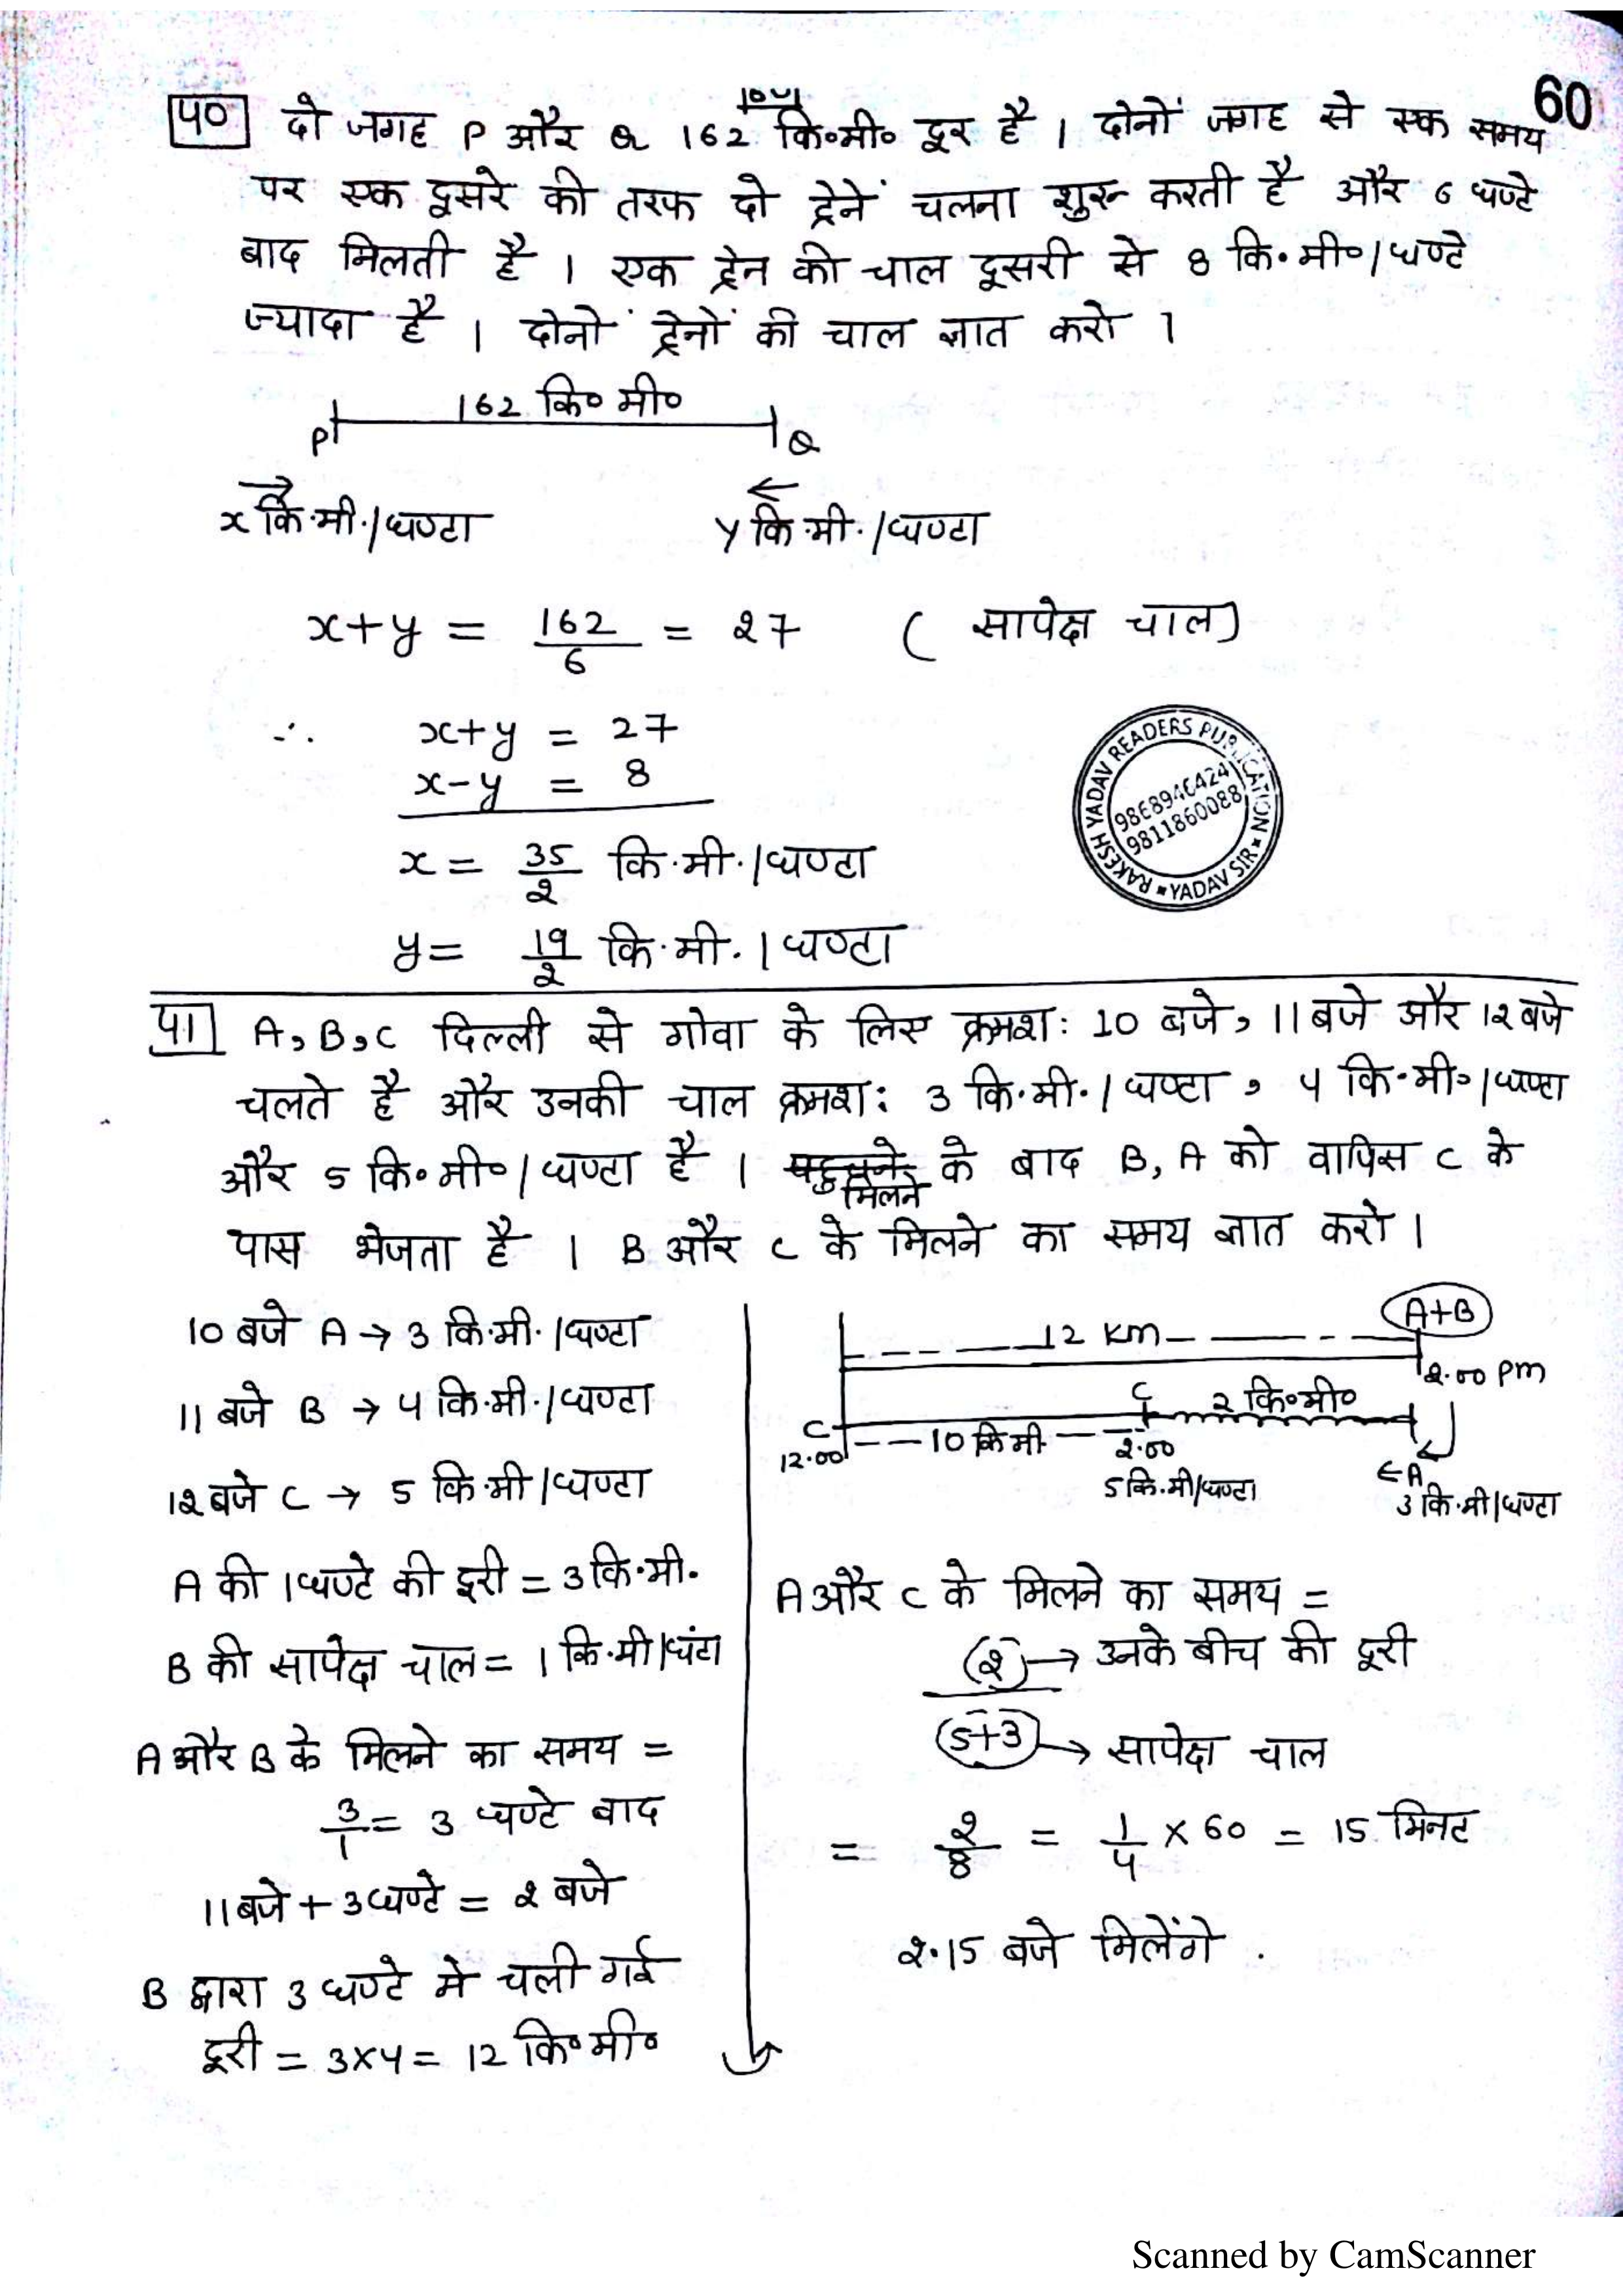 60
40 दो जगह P और Q 162 कि०मी० दूर है । दोनों जगह से एक समय
पर एक दूसरे की तरफ दो ट्रेनें चलना शुरू करती है और 6 घण्टे
बाद मिलती है । एक ट्रेन की चाल दूसरी से 8 कि.मी०/घण्टे
ज्यादा है । दोनों ट्रेनों की चाल ज्ञात करो ।
162 कि० मी०
P Q
x कि.मी./घण्टा y कि.मी./घण्टा
x+y = 162/6 = 27 ( सापेक्ष चाल)
∴ x+y = 27
x-y = 8
x = 35/2 कि.मी./घण्टा
y = 19/2 कि.मी./घण्टा
RAKESH YADAV READERS PUBLICATION
YADAV SIR
9868946424
9811860088
41 A,B,C दिल्ली से गोवा के लिए क्रमश: 10 बजे, 11 बजे और 12 बजे
चलते है और उनकी चाल क्रमश: 3 कि.मी./घण्टा, 4 कि.मी०/घण्टा
और 5 कि०मी०/घण्टा है । मिलने के बाद B, A को वापिस C के
पास भेजता है । B और C के मिलने का समय ज्ञात करो ।
10 बजे A → 3 कि.मी./घण्टा
11 बजे B → 4 कि.मी./घण्टा
12 बजे C → 5 कि.मी/घण्टा
A की 1 घण्टे की दूरी = 3 कि.मी.
B की सापेक्ष चाल = 1 कि.मी/घंटा
A और B के मिलने का समय =
3/1 = 3 घण्टे बाद
11 बजे + 3 घण्टे = 2 बजे
B द्वारा 3 घण्टे मे चली गई
दूरी = 3x4 = 12 कि०मी०
A+B
12 KM
2.00 PM
C 2 कि०मी०
C 10 कि मी
12.00 2.00
5 कि.मी/घण्टा
←A
3 कि.मी/घण्टा
A और C के मिलने का समय =
(2) → उनके बीच की दूरी
(5+3) → सापेक्ष चाल
= 2/8 = 1/4 x 60 = 15 मिनट
2.15 बजे मिलेंगे .
Scanned by CamScanner